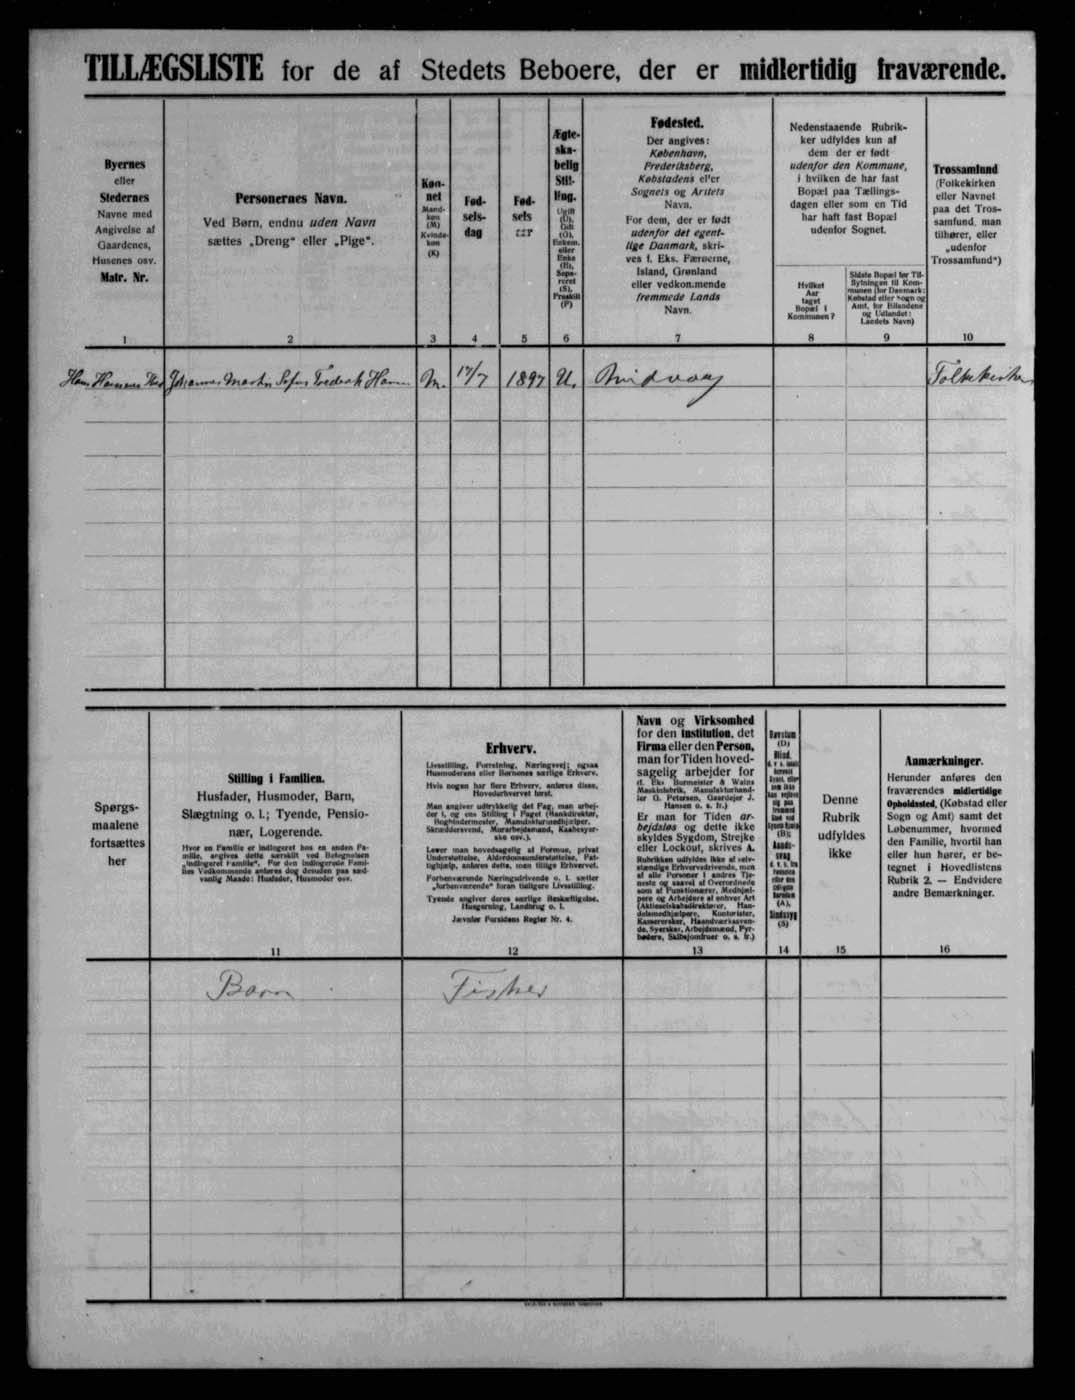 TILLÆGSLISTE for de af Stedets Beboere, der er midlertidig fraværende.
Byernes
eller
Stedernes
Navne med
Angivelse af
Gaardenes,
Husenes osv.
Matr. Nr.
1
Personernes Navn.
Ved Børn, endnu uden Navn
sættes „Dreng“ eller „Pige“.
2
Køn-
net
Mand-
køn
(M)
Kvinde-
køn
(K)
3
Fød-
sels-
dag
4
Fød-
sels
aar
5
Ægte-
ska-
belig
Stil-
ling.
Ugift
(U),
Gift
(G),
Enkem.
eller
Enke
(E),
Sepa-
reret
(S),
Fraskilt
(F)
6
Fødested.
Der angives:
København,
Frederiksberg,
Købstadens eller
Sognets og Amtets
Navn.
For dem, der er født
udenfor det egent-
lige Danmark, skri-
ves f. Eks. Færøerne,
Island, Grønland
eller vedkommende
fremmede Lands
Navn.
7
Nedenstaaende Rubrik-
ker udfyldes kun af
dem der er født
udenfor den Kommune,
i hvilken de har fast
Bopæl paa Tællings-
dagen eller som en Tid
har haft fast Bopæl
udenfor Sognet.
Hvilket
Aar
taget
Bopæl i
Kommunen?
8
Sidste Bopæl før Til-
flytningen til Kom-
munen (for Danmark:
Købstad eller Sogn og
Amt, for Bilandene
og Udlandet:
Landets Navn)
9
Trossamfund
(Folkekirken
eller Navnet
paa det Tros-
samfund, man
tilhører, eller
„udenfor
Trossamfund“)
10
Hans Hansens Johannes Martin Sofus Frederik M. 17/7 1897 U. Midvaag Folkekirken
Spørgs-
maalene
fortsættes
her
Stilling i Familien.
Husfader, Husmoder, Barn,
Slægtning o. l.; Tyende, Pensio-
nær, Logerende.
Hvor en Familie er indlogeret hos en anden Fa-
milie, angives dette særskilt ved Betegnelsen
„indlogeret Familie“. For den indlogerede Fami-
lies Vedkommende anføres dog desuden paa sæd-
vanlig Maade: Husfader, Husmoder osv.
11
Erhverv.
Livsstilling, Forretning, Næringsvej; ogsaa
Husmoderens eller Børnenes særlige Erhverv.
Hvis nogen har flere Erhverv, anføres disse,
Hovederhvervet først.
Man angiver udtrykkelig det Fag, man arbej-
der i, og ens Stilling i Faget (Bankdirektør,
Bogbindermester, Manufakturmedhjælper,
Skræddersvend, Murarbejdsmand, Kaabesyer-
ske osv.).
Lever man hovedsagelig af Formue, privat
Understøttelse, Alderdomsunderstøttelse, Fat-
tighjælp, anføres dette, men tillige Erhvervet.
Forhenværende Næringsdrivende o. l. sætter
„forhenværende“ foran tidligere Livsstilling.
Tyende angiver deres særlige Beskæftigelse,
Husgerning, Landbrug o. l.
Jævnfør Forsidens Regler Nr. 4.
12
Navn og Virksomhed
for den Institution, det
Firma eller den Person,
man for Tiden hoved-
sagelig arbejder for
(f. Eks. Burmeister & Wains
Maskinfabrik, Manufakturhand-
ler G. Petersen, Gaardejer J.
Hansen o. s. fr.)
Er man for Tiden ar-
bejdsløs og dette ikke
skyldes Sygdom, Strejke
eller Lockout, skrives A.
Rubrikken udfyldes ikke af selv-
stændige Erhvervsdrivende, men
af alle Personer i andres Tje-
neste og saavel af Overordnede
som af Funktionærer, Medhjæl-
pere og Arbejdere af enhver Art
(Aktieselskabsdirektører, Han-
delsmedhjælpere, Kontorister,
Kassersker, Haandværkssven-
de, Syersker, Arbejdsmænd, Fyr-
bødere, Skibsjomfruer o. s. fr.)
13
Døvstum
(D)
Blind,
(B),
Aands-
svag
(A),
Sindssyg
(S)
14
Denne
Rubrik
udfyldes
ikke
15
Anmærkninger.
Herunder anføres den
fraværendes midlertidige
Opholdssted, (Købstad eller
Sogn og Amt) samt det
Løbenummer, hvormed
den Familie, hvortil han
eller hun hører, er be-
tegnet i Hovedlistens
Rubrik 2. — Endvidere
andre Bemærkninger.
16
Barn Fisker